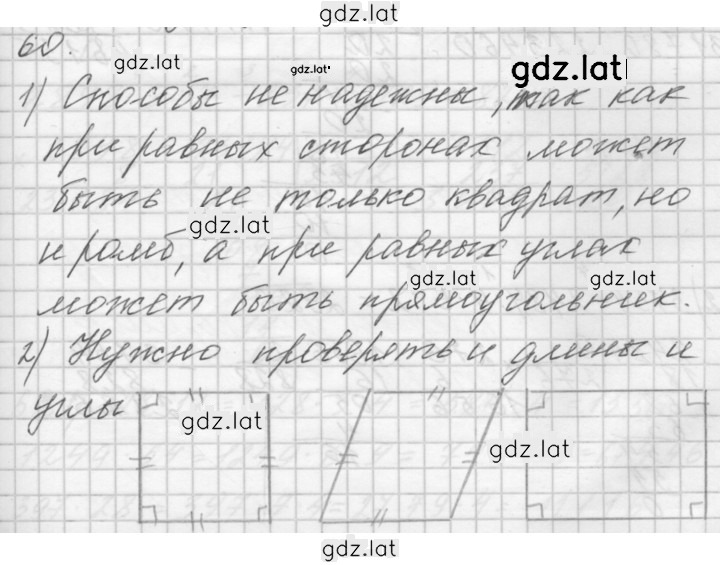 gdz.lat
60.
gdz.lat gdz.lat gdz.lat
1) Способы не надежны, так как
при равных сторонах может
быть не только квадрат, но
gdz.lat
и ромб, а при равных углах
gdz.lat gdz.lat
может быть прямоугольник.
2) Нужно проверять и длины и
углы
gdz.lat
gdz.lat
gdz.lat